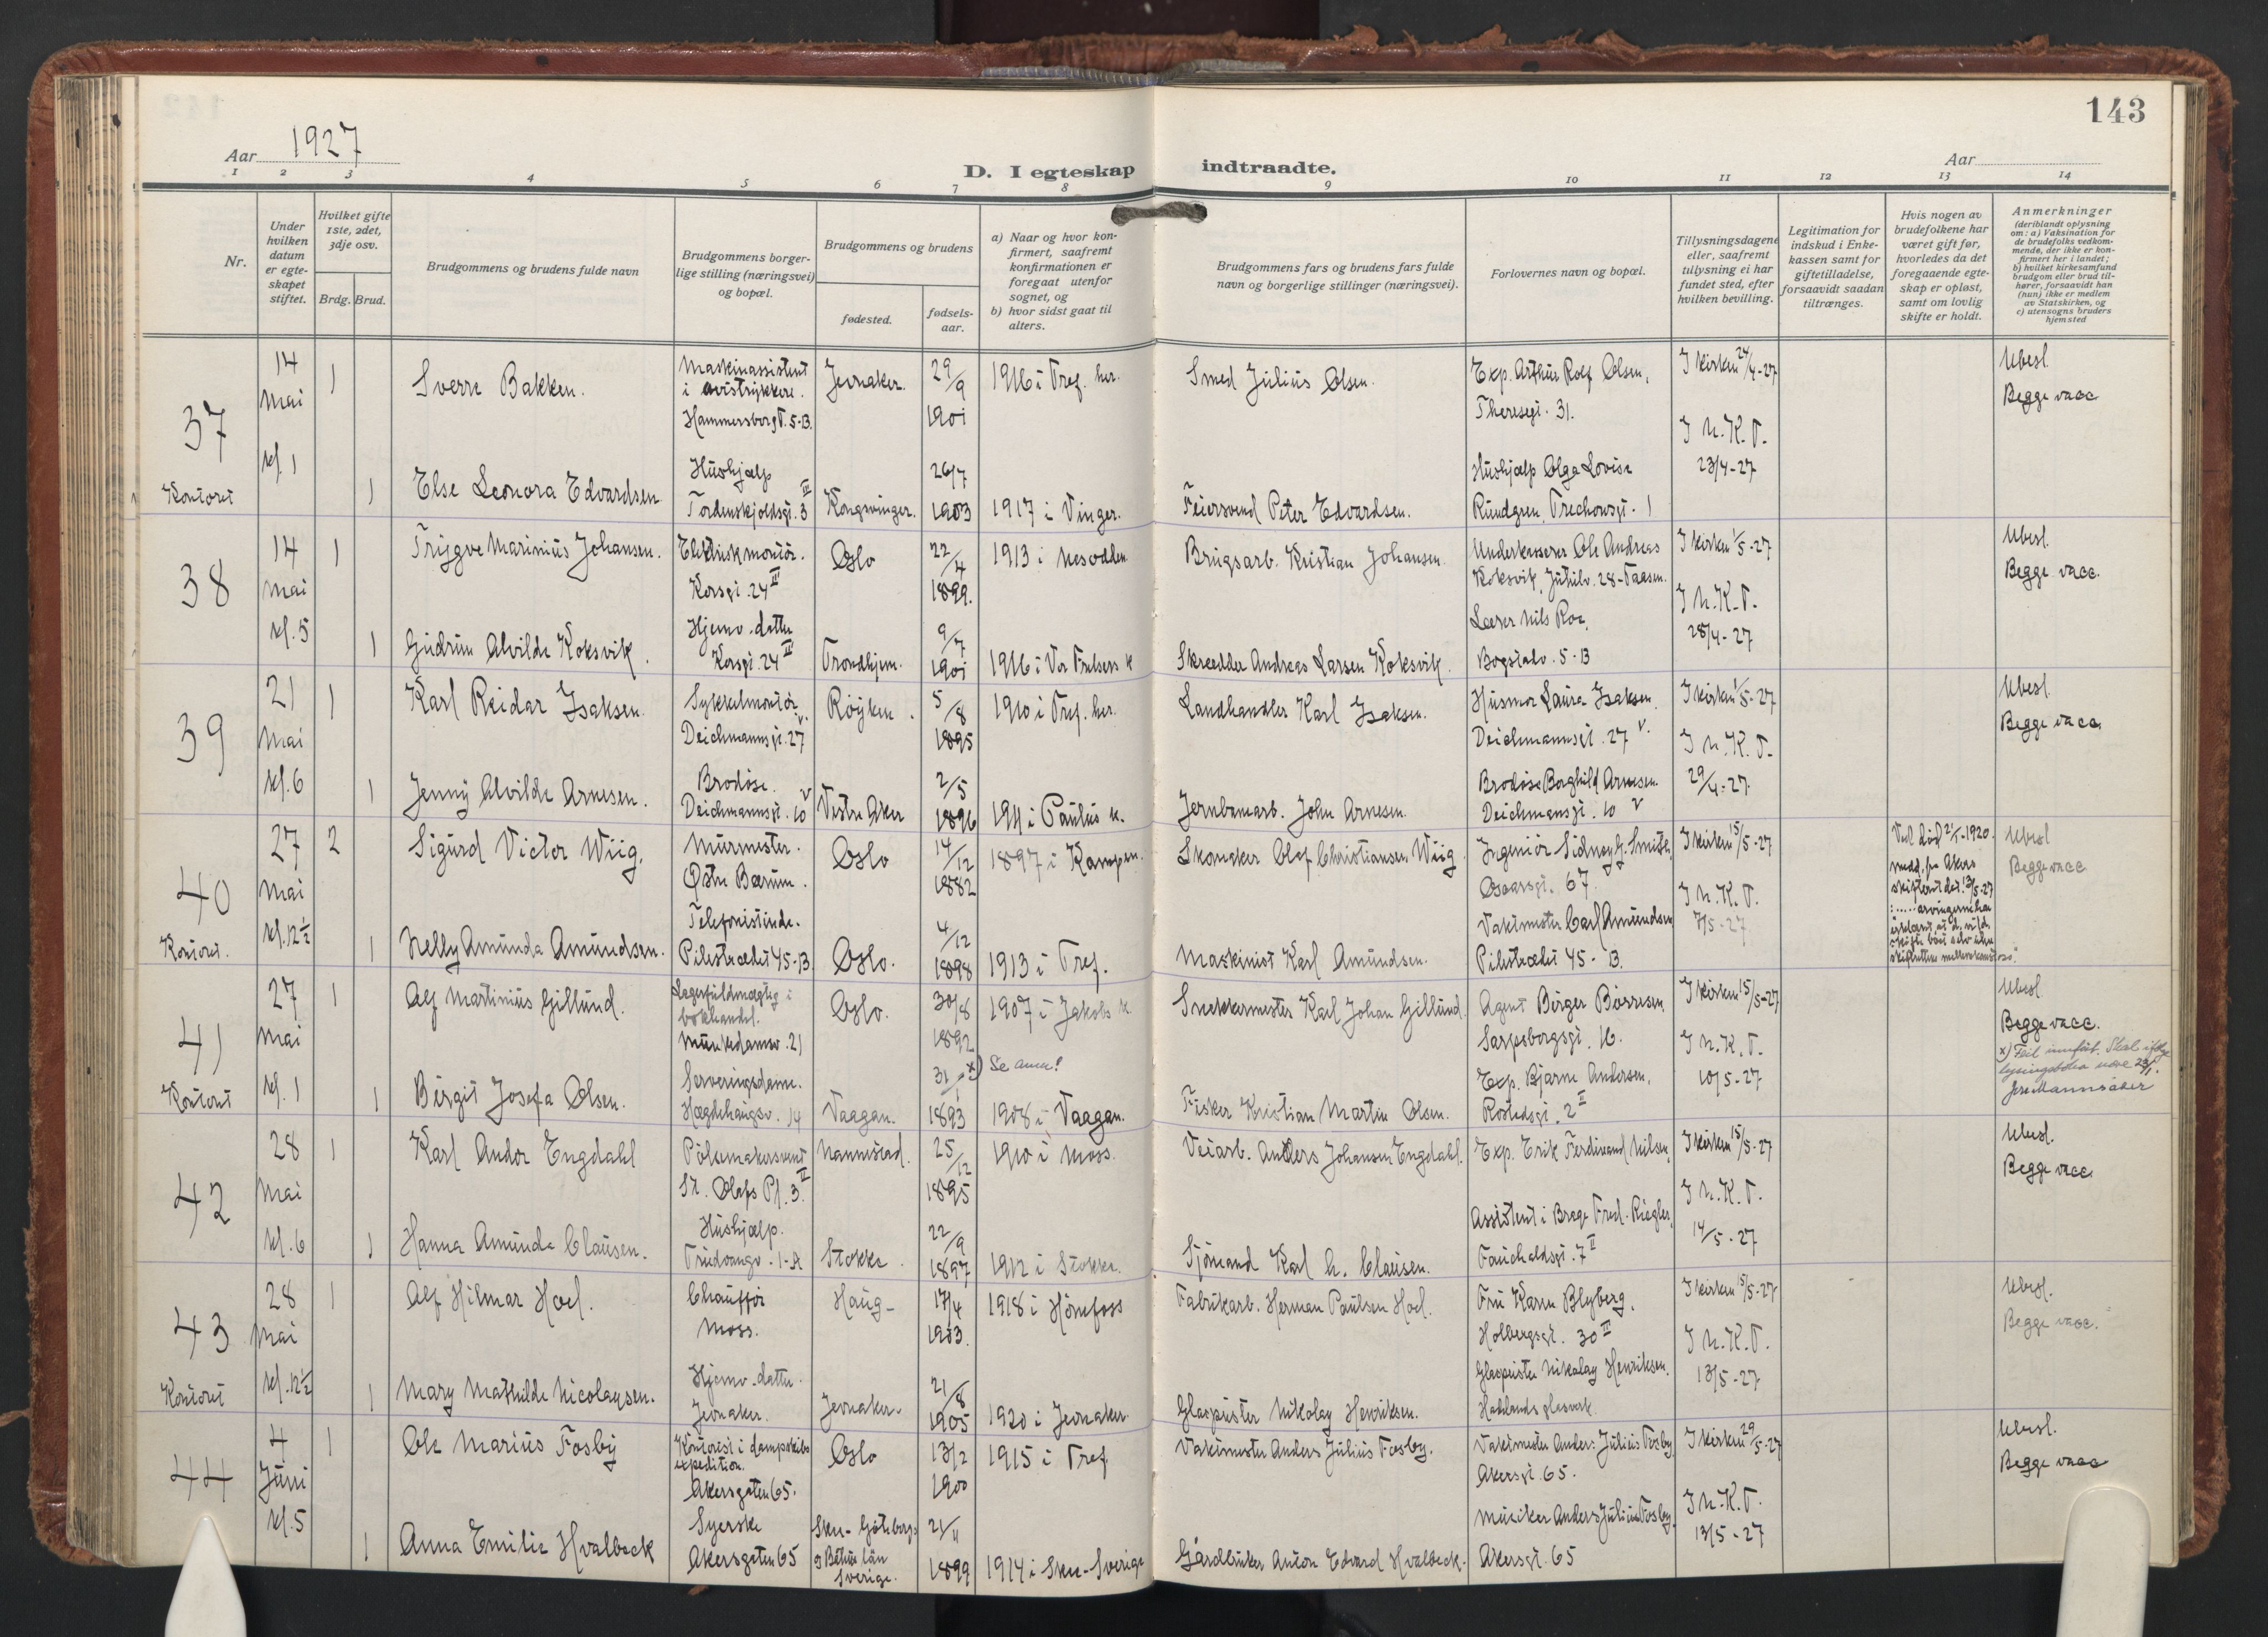 143
Aar 1927
D. I egteskap indtraadte.
Aar
1 2 3 4 5 6 7 8 9 10 11 12 13 14
Nr.
Under hvilken datum er egte-skapet stiftet.
Hvilket gifte 1ste, 2det, 3dje osv.
Brdg. Brud.
Brudgommens og brudens fulde navn
Brudgommens borger-lige stilling (næringsvei) og bopæl.
Brudgommens og brudens
fødested.
fødsels-aar.
a) Naar og hvor kon-firmert, saafremt konfirmationen er foregaat utenfor sognet, og
b) hvor sidst gaat til alters.
Brudgommens fars og brudens fars fulde navn og borgerlige stillinger (næringsvei).
Forlovernes navn og bopæl.
Tillysningsdagene eller, saafremt tillysning ei har fundet sted, efter hvilken bevilling.
Legitimation for indskud i Enke-kassen samt for giftetilladelse, forsaavidt saadan tiltrænges.
Hvis nogen av brudefolkene har været gift før, hvorledes da det foregaaende egte-skap er opløst, samt om lovlig skifte er holdt.
Anmerkninger (deriblandt oplysning om: a) Vaksination for de brudefolks vedkom-mende, der ikke er kon-firmert her i landet; b) hvilket kirkesamfund brudgom eller brud til-hører, forsaavidt han (hun) ikke er medlem av Statskirken, og c) utensogns bruders hjemsted
37 Kontoret
14 Mai kl. 1
1 Sverre Bakken.
Maskinassistent i avistrykkeri. Hammersborg T. 5-B.
Jevnaker. 29/9 1901
1916 i Tref. her.
Smed Julius Olsen.
Exp. Arthur Rolf Olsen, Theresegt. 31.
I kirken 24/4-27
I N.K.T. 23/4-27
Ubesl. Begge vacc.
1 Else Leonora Edvardsen
Hushjælp Tordenskjoldsgt. 3 III
Kongsvinger. 26/7 1903
1917 i Vinger.
Feiersvend Peter Edvardsen.
Hushjælp Olga Lovise Rundgren, Treschowsgt. 1
38
14 Mai kl. 5
1 Trygve Marinius Johansen.
Elektrisk montör. Korsgt. 24 III
Oslo 22/4 1899.
1913 i Nesodden
Brugsarb. Kristian Johansen.
Underkasserer Ole Andreas Koksvik, Jutulv. 28-Taasen.
I kirken 1/5-27
I N.K.T. 28/4-27
Ubesl. Begge vacc.
1 Gudrun Alvilde Koksvik.
Hjemv. datter Korsgt. 24 II
Trondhjem. 9/7 1901
1916 i Vor Frelsers k
Skrædder Andreas Larsen Koksvik.
Læser Nils Roe, Bogstadv. 5-B
39
21 Mai kl. 6
1 Karl Reidar Isaksen.
Sykkelmontör Deichmannsgt. 27 V.
Röyken. 5/8 1895
1910 i Tref. her.
Landhandler Karl Isaksen.
Husmor Laura Isaksen, Deichmannsgt. 27 V.
I kirken 1/5-27
I N.K.T. 29/4-27
Ubesl. Begge vacc.
1 Jenny Alvilde Arnesen.
Brodöse. Deichmannsgt. 10 V
Vestre Aker 2/5 1896
1911 i Paulus k.
Jernbanearb. John Arnesen.
Brodöse Borghild Arnesen. Deichmansgt. 10 V
40 Kontoret.
27 Mai kl. 12½
2 Sigurd Victor Wiig.
Murmester. Østre Bærum.
Oslo 14/12 1882
1897 i Kampen.
Skomaker Olaf Christiansen Wiig
Ingeniör Sidney G. Smith, Oscarsgt. 67.
I kirken 15/5-27
I N.K.T. 7/5-27
Ubesl Begge vacc
1 Nelly Amunda Amundsen.
Telefonistinde. Pilestrædet 45-B.
Oslo. 4/12 1898
1913 i Tref.
Maskinist Karl Amundsen.
Vaktmester Carl Amundsen Pilestrædet 45-B.
41 Kontoret
27 Mai kl. 1
1 Alf Martinius Gillund.
Lagerfuldmægtig i bokhandel. Munkedamsv. 21
Oslo. 30/8 1892
1907 i Jakobs k.
Snekkermester Karl Johan Gillund.
Agent Birger Börresen, Sarpsborgsgt. 16.
I kirken 15/5-27
I N.K.T. 10/5-27
Ubesl Begge vacc.
x) Feil innfört. Skal ifölge lysningsboka være 23/1.
1 Birgit Josefa Olsen.
Serveringsdame. Hægdehaugsv. 14
Vaagan. 31/1 x) 1893
Se anm!
1908 i Vaagan.
Fisker Kristian Martin Olsen.
Exp. Bjarne Andersen, Rostedsgt. 2 II
42
28 Mai kl. 6
1 Karl Andor Engdahl
Pölsemakersvend St. Olafs Pl. 3 II
Nannestad. 25/12 1895
1910 i Moss.
Veiarb. Anders Johansen Engdahl.
Exp. Erik Ferdinand Nilsen,
I kirken 15/5-27
I N.K.T. 14/5-27
Ubesl. Begge vacc.
1 Hanna Amunda Clausen.
Hushjælp. Trudvangv. 1-A
Stokke. 22/9 1897
1912 i Stokke.
Sjömand Karl H. Clausen.
Assistent i Brage Fred. Riegler, Fauchaldsgt. 7 II
43 Kontoret
28 Mai kl. 12½
1 Alf Hilmar Hoel.
Chaufför Moss.
Haug- 17/4 1903.
1918 i Hönefoss
Fabrikarb. Herman Paulsen Hoel.
Fru Karen Blyberg, Holbergsgt. 30 II
I kirken 15/5-27
I N.K.T. 13/5-27
Ubesl. Begge vacc.
1 Mary Mathilde Nicolaysen.
Hjemv. datter. Jevnaker.
Jevnaker. 21/8 1905
1920 i Jevnaker
Glaspuster Nikolay Henriksen.
Glaspuster Nikolay Henriksen. Hadelands glasverk.
44
4 Juni kl. 5
1 Ole Marius Fosby
Kontorist i dampskibs expedition. Akersgaten 65.
Oslo 13/2 1900
1915 i Tref.
Vaktmester Anders Julius Fosby.
Vaktmester Anders Julius Fosby, Akersgt. 65.
I kirken 29/5-27
I N.K.T. 13/5-27
Ubesl. Begge vacc
1 Anna Emilie Hvalbeck
Syerske Akersgaten 65
Skee-Göteborgs og Bohus län Sverige. 21/11 1899
1914 i Skee-Sverige
Gårdbruker Anton Edvard Hvalbeck.
Musiker Anders Julius Fosby, Akersgt. 65